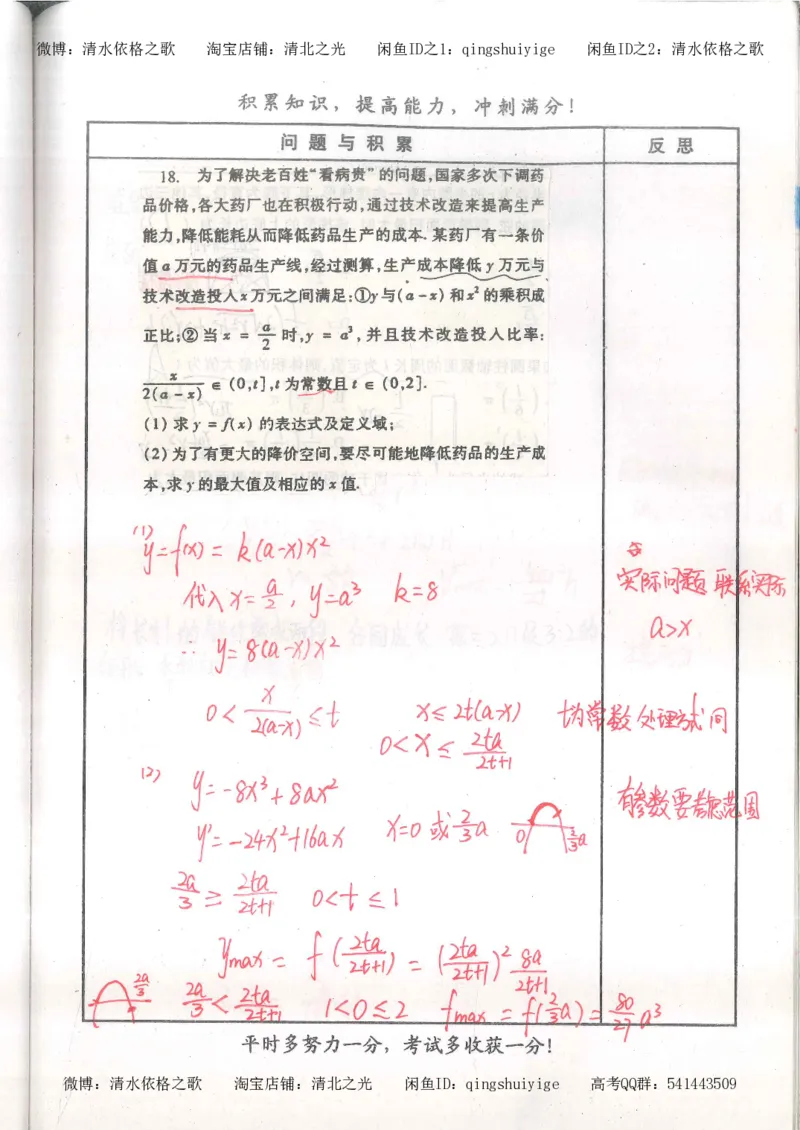 微博：清水依格之歌 淘宝店铺：清北之光 闲鱼ID之1：qingshuiyige 闲鱼ID之2：清水依格之歌
积累知识，提高能力，冲刺满分！
问题与积累 反思
18. 为了解决老百姓“看病贵”的问题,国家多次下调药
品价格,各大药厂也在积极行动,通过技术改造来提高生产
能力,降低能耗从而降低药品生产的成本.某药厂有一条价
值a万元的药品生产线,经过测算,生产成本降低y万元与
技术改造投入x万元之间满足:①y与(a-x)和x²的乘积成
正比;②当x = a/2 时,y = a³,并且技术改造投入比率:
x/2(a-x) ∈ (0,t],t为常数且t ∈ (0,2].
(1)求y = f(x)的表达式及定义域;
(2)为了有更大的降价空间,要尽可能地降低药品的生产成
本,求y的最大值及相应的x值.
(1) y=f(x) = k(a-x)x²
代入x=a/2, y=a³ k=8
∴ y= 8(a-x)x²
实际问题 联系实际
a>x
0< x/2(a-x) ≤t x≤ 2t(a-x)
t为常数 处理方式同
0<x≤ 2ta/2t+1
(2) y=-8x³+8ax²
有参数要考虑范围
y'=-24x²+16ax x=0或2/3a 0 2/3a
2a/3 ≥ 2ta/2t+1 0<t≤1
ymax = f(2ta/2t+1) = (2ta/2t+1)² 8a/2t+1
2a/3 2a/3 < 2ta/2t+1 1<0≤2 fmax = f(2/3a) = 80/27 a³
平时多努力一分，考试多收获一分！
微博：清水依格之歌 淘宝店铺：清北之光 闲鱼ID：qingshuiyige 高考QQ群：541443509